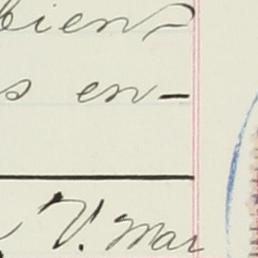 bien
s en-
V. Mar